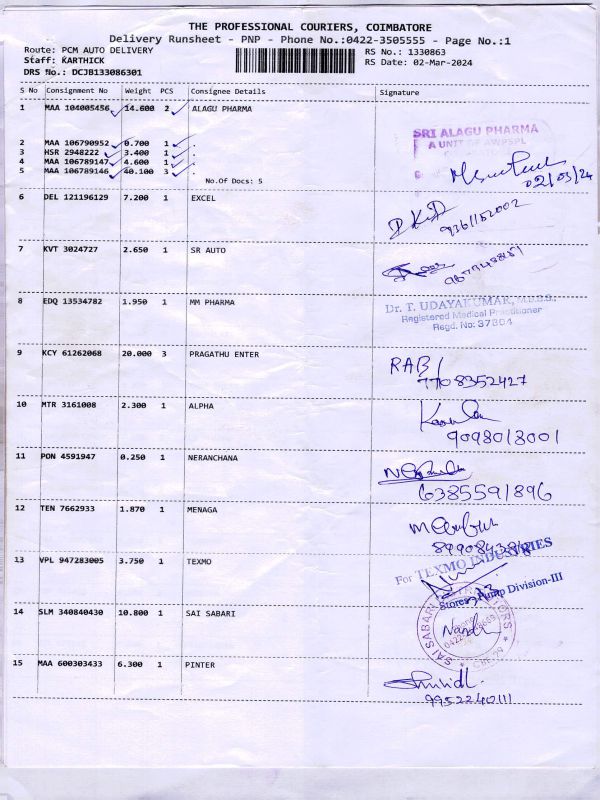 THE PROFESSIONAL COURIERS, COIMBATORE
Delivery Runsheet - PNP - Phone No.:0422-3505555 - Page No.:1
Route: PCM AUTO DELIVERY RS No.: 1330863
Staff: KARTHICK RS Date: 02-Mar-2024
DRS No.: DCJB133086301
S No Consignment No Weight PCS Consignee Details Signature
1 MAA 104005456 14.600 2 ALAGU PHARMA
SRI ALAGU PHARMA
A UNIT OF AWPSPL
2 MAA 106790952 0.700 1 .
3 HSR 2948222 3.400 1 .
4 MAA 106789147 4.600 1 .
5 MAA 106789146 40.100 3 .
No.Of Docs: 5
02/03/24
6 DEL 121196129 7.200 1 EXCEL
9361152002
7 KVT 3024727 2.650 1 SR AUTO
8 EDQ 13534782 1.950 1 MM PHARMA
Dr. T. UDAYAKUMAR, M.B.B.S.
Registered Medical Practitioner
Regd. No: 37804
9 KCY 61262068 20.000 3 PRAGATHU ENTER
RAB/
7708352427
10 MTR 3161008 2.300 1 ALPHA
9098013001
11 PON 4591947 0.250 1 NERANCHANA
6385591896
12 TEN 7662933 1.870 1 MENAGA
13 VPL 947283005 3.750 1 TEXMO
For TEXMO INDUSTRIES
Stores Pump Division-III
14 SLM 340840430 10.800 1 SAI SABARI
SAI SABARI
Nandh
15 MAA 600303433 6.300 1 PINTER
9952240111